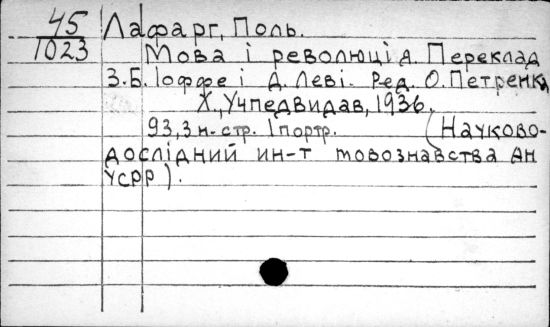 45
1023
Лафарг, Поль.
Мова і революція. Переклад
З.Б. Іоффе і Д. Леві. Ред. О. Петренка
Х., Учпедвидав, 1936.
93, 3 н. стр. 1 портр. (Науково-
дослідний ин-т мовознавства АН
УСРР).